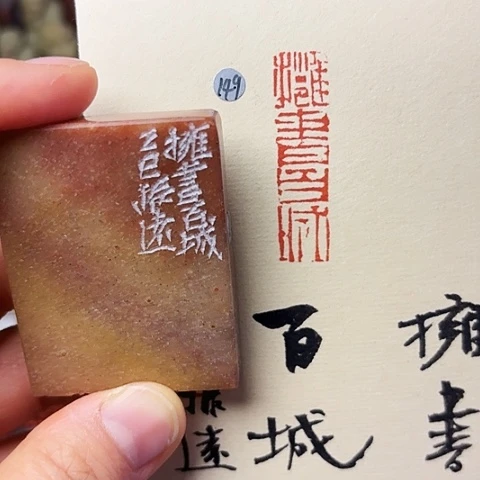 擁書百城
乙巳振遠
149
擁書百城
擁書
百城
振遠